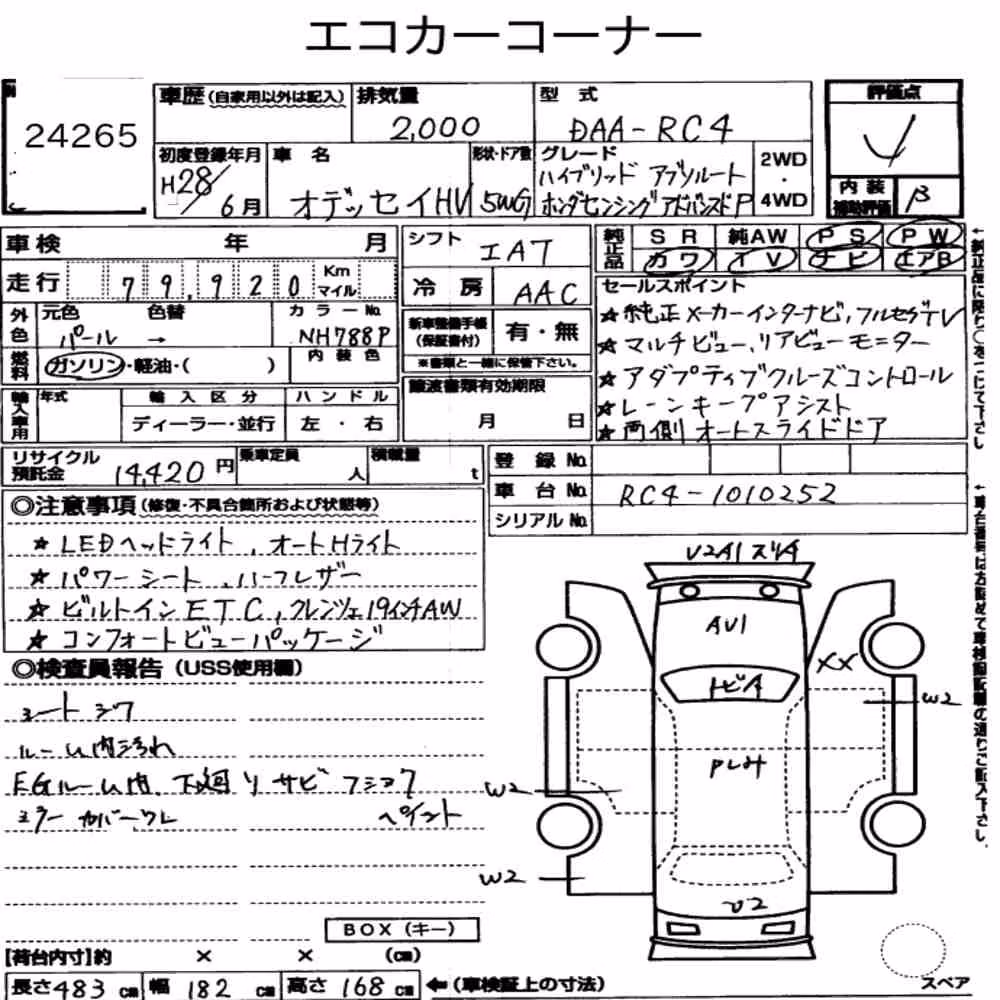 エコカーコーナー
24265
車歴(自家用以外は記入)
排気量
2,000
型 式
DAA-RC4
評価点
内装
補助評価
B
初度登録年月
H28/6月
車 名
オデッセイHV
形状・ドア数
5WG
グレード
ハイブリッド アブソルート
ホンダセンシング アドバンスドP
2WD
・
4WD
車検 年 月
走行 79,920 Km マイル
シフト
IAT
冷 房
AAC
純正品
SR 純AW PS PW
カワ TV ナビ エアB
外色
元色 色替
パール →
カラーNo.
NH788P
燃料
ガソリン・軽油・( )
内装色
新車整備手帳
(保証書付)
有・無
※書類と一緒に保管下さい。
譲渡書類有効期限
月 日
セールスポイント
★純正メーカーインターナビ,フルセグTV
★マルチビュー,リアビューモニター
★アダプティブクルーズコントロール
★レーンキープアシスト
★両側オートスライドドア
輸入車用
年式
輸入区分
ディーラー・並行
ハンドル
左・右
リサイクル
預託金 14,420円
乗車定員
人
積載量
t
登録No.
車台No. RC4-1010252
シリアルNo.
◎注意事項(修復・不具合箇所および状態等)
★LEDヘッドライト,オートHライト
★パワーシート,ハーフレザー
★ビルトインETC,クレンツェ19インチAW
★コンフォートビューパッケージ
◎検査員報告(USS使用欄)
シートシワ
ルーム内汚れ
EGルーム内、下廻りサビ フショク
ミラーカバーワレ ペイント
U2A1 スリA
AU1
トビA
XX
W2
W2
W2
U2
BOX(キー)
【荷台内寸】約 × × (cm)
長さ483cm 幅182cm 高さ168cm ←(車検証上の寸法)
スペア